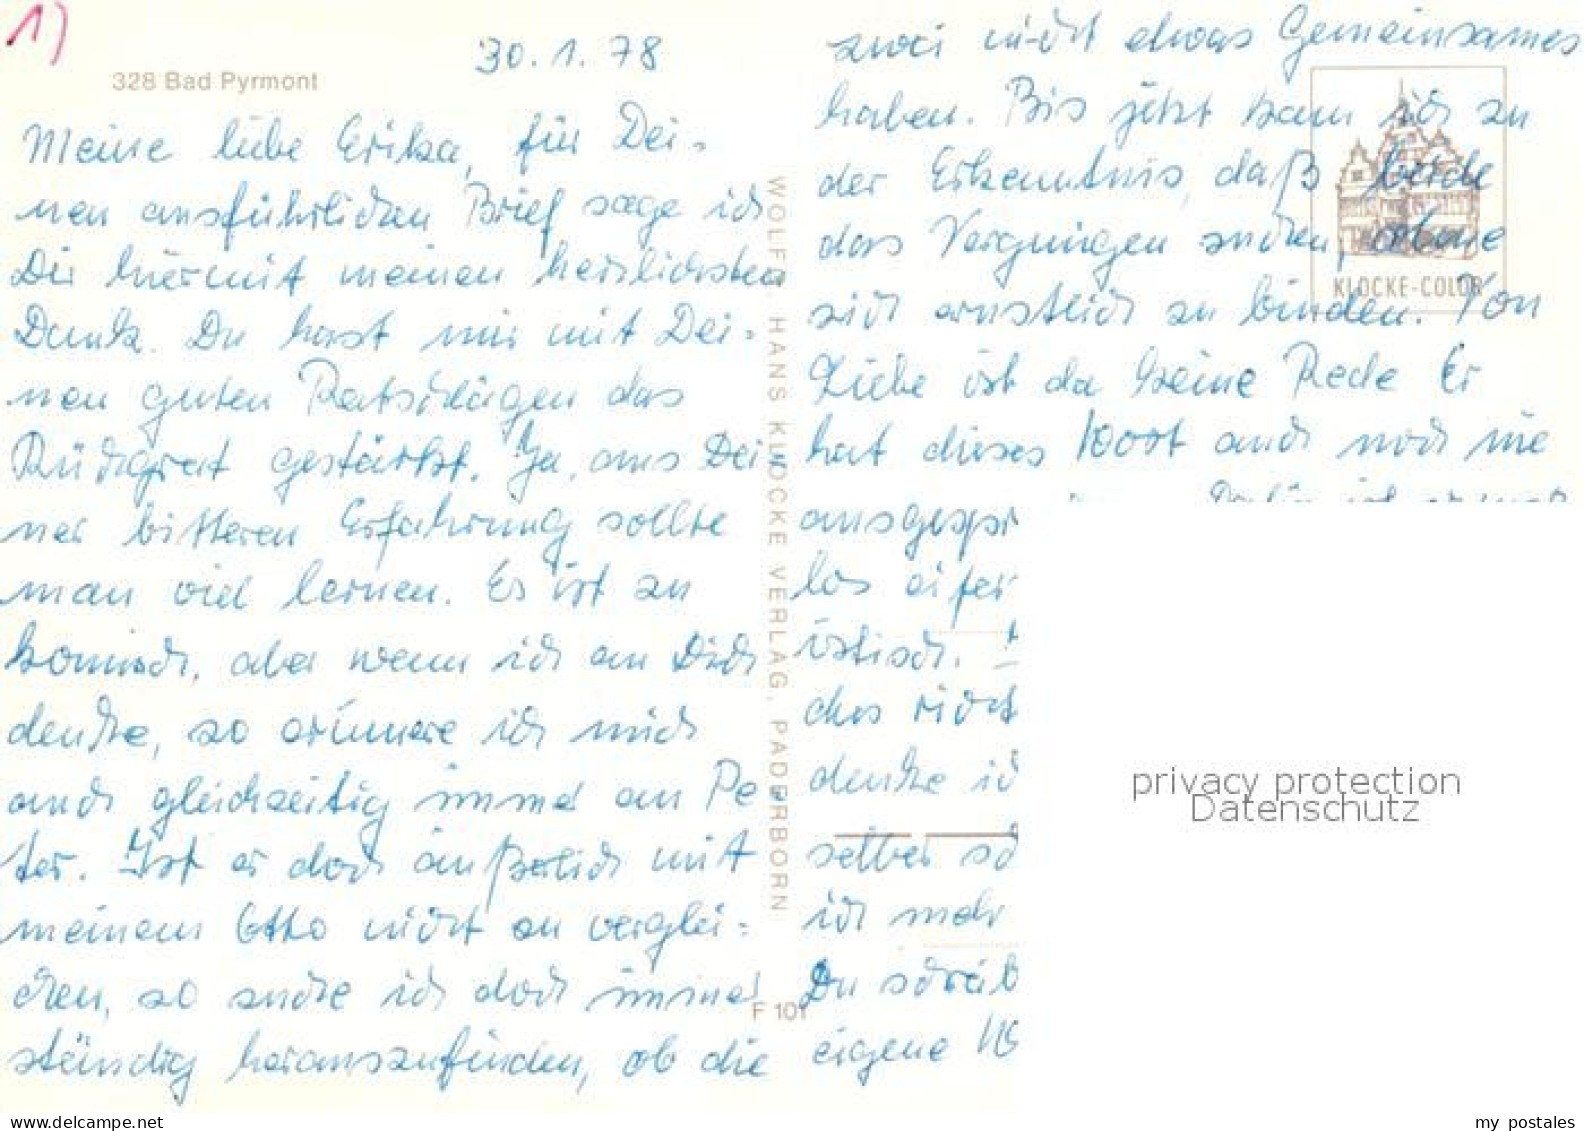 1)
30. 1. 78
328 Bad Pyrmont
Meine liebe Erika, für Dei-
nen ausführlichen Brief sage ich
Dir hiermit meinen herzlichsten
Dank. Du hast mir mit Dei-
nen guten Ratschlägen das
Rückgrat gestärkt. Ja, aus Dei
ner bitteren Erfahrung sollte
man viel lernen. Es ist zu
komisch, aber wenn ich an Dich
denke, so erinnere ich mich
auch gleichzeitig immer an Pe
ter. Ist er doch äußerlich mit
meinem Otto nicht zu verglei-
chen, so suche ich doch immer
ständig herauszufinden, ob die
WOLFG. HANS KLOCKE VERLAG, PADERBORN
F 101
zwei nicht etwas Gemeinsames
haben. Bis jetzt kam ich zu
der Erkenntnis, daß beide
das Vergnügen suchen, ohne
sich ernstlich zu binden. Von
Liebe ist da keine Rede Er
hat dieses Wort auch noch nie
ausgespr
los eifer
istisch.
ches richt
denke ich
selber so
ich mehr
Du schreib
eigene
KLOCKE-COLOR
privacy protection
Datenschutz
my postales